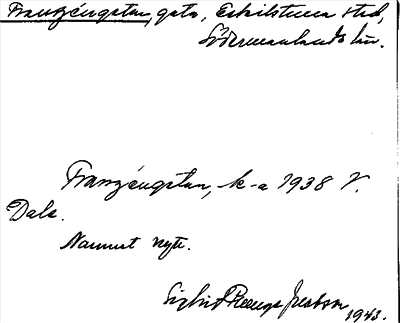 Franzéngatan, gata, Eskilstuna stad,
Södermanlands län.
Franzéngatan, k-a 1938 V.
Dala.
Namnet nytt.
Sigrid Jacobson 1943.